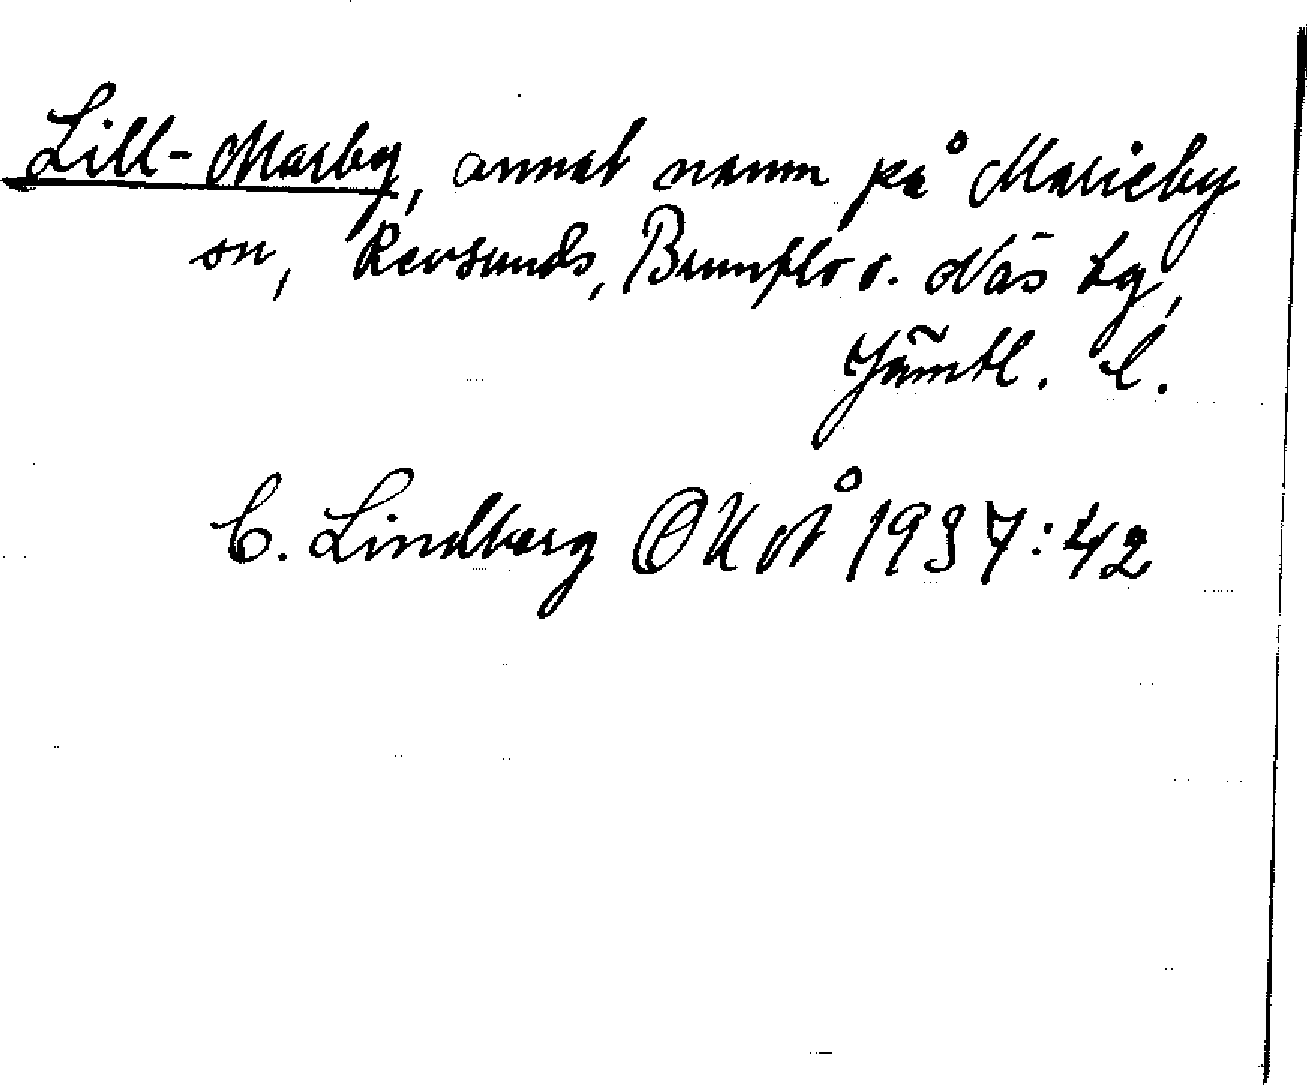 Lill-Marby, annat namn på Marieby
sn, Revsunds, Brunflo o. Näs tg,
Jämtl. l.
C. Lindberg OUoÅ 1937:42